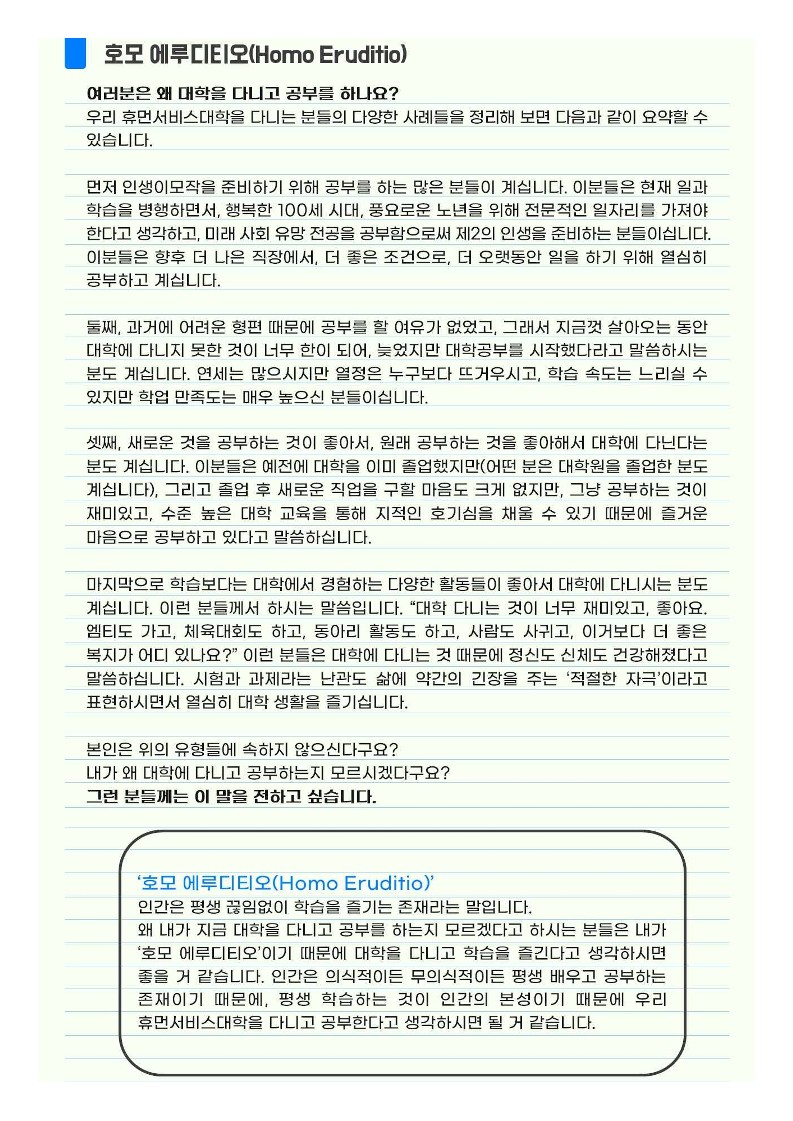 호모 에루디티오(Homo Eruditio)
여러분은 왜 대학을 다니고 공부를 하나요?
우리 휴먼서비스대학을 다니는 분들의 다양한 사례들을 정리해 보면 다음과 같이 요약할 수
있습니다.
먼저 인생이모작을 준비하기 위해 공부를 하는 많은 분들이 계십니다. 이분들은 현재 일과
학습을 병행하면서, 행복한 100세 시대, 풍요로운 노년을 위해 전문적인 일자리를 가져야
한다고 생각하고, 미래 사회 유망 전공을 공부함으로써 제2의 인생을 준비하는 분들이십니다.
이분들은 향후 더 나은 직장에서, 더 좋은 조건으로, 더 오랫동안 일을 하기 위해 열심히
공부하고 계십니다.
둘째, 과거에 어려운 형편 때문에 공부를 할 여유가 없었고, 그래서 지금껏 살아오는 동안
대학에 다니지 못한 것이 너무 한이 되어, 늦었지만 대학공부를 시작했다라고 말씀하시는
분도 계십니다. 연세는 많으시지만 열정은 누구보다 뜨거우시고, 학습 속도는 느리실 수
있지만 학업 만족도는 매우 높으신 분들이십니다.
셋째, 새로운 것을 공부하는 것이 좋아서, 원래 공부하는 것을 좋아해서 대학에 다닌다는
분도 계십니다. 이분들은 예전에 대학을 이미 졸업했지만(어떤 분은 대학원을 졸업한 분도
계십니다), 그리고 졸업 후 새로운 직업을 구할 마음도 크게 없지만, 그냥 공부하는 것이
재미있고, 수준 높은 대학 교육을 통해 지적인 호기심을 채울 수 있기 때문에 즐거운
마음으로 공부하고 있다고 말씀하십니다.
마지막으로 학습보다는 대학에서 경험하는 다양한 활동들이 좋아서 대학에 다니시는 분도
계십니다. 이런 분들께서 하시는 말씀입니다. “대학 다니는 것이 너무 재미있고, 좋아요.
엠티도 가고, 체육대회도 하고, 동아리 활동도 하고, 사람도 사귀고, 이거보다 더 좋은
복지가 어디 있나요?” 이런 분들은 대학에 다니는 것 때문에 정신도 신체도 건강해졌다고
말씀하십니다. 시험과 과제라는 난관도 삶에 약간의 긴장을 주는 ‘적절한 자극’이라고
표현하시면서 열심히 대학 생활을 즐기십니다.
본인은 위의 유형들에 속하지 않으신다구요?
내가 왜 대학에 다니고 공부하는지 모르시겠다구요?
그런 분들께는 이 말을 전하고 싶습니다.
‘호모 에루디티오(Homo Eruditio)’
인간은 평생 끊임없이 학습을 즐기는 존재라는 말입니다.
왜 내가 지금 대학을 다니고 공부를 하는지 모르겠다고 하시는 분들은 내가
‘호모 에루디티오’이기 때문에 대학을 다니고 학습을 즐긴다고 생각하시면
좋을 거 같습니다. 인간은 의식적이든 무의식적이든 평생 배우고 공부하는
존재이기 때문에, 평생 학습하는 것이 인간의 본성이기 때문에 우리
휴먼서비스대학을 다니고 공부한다고 생각하시면 될 거 같습니다.